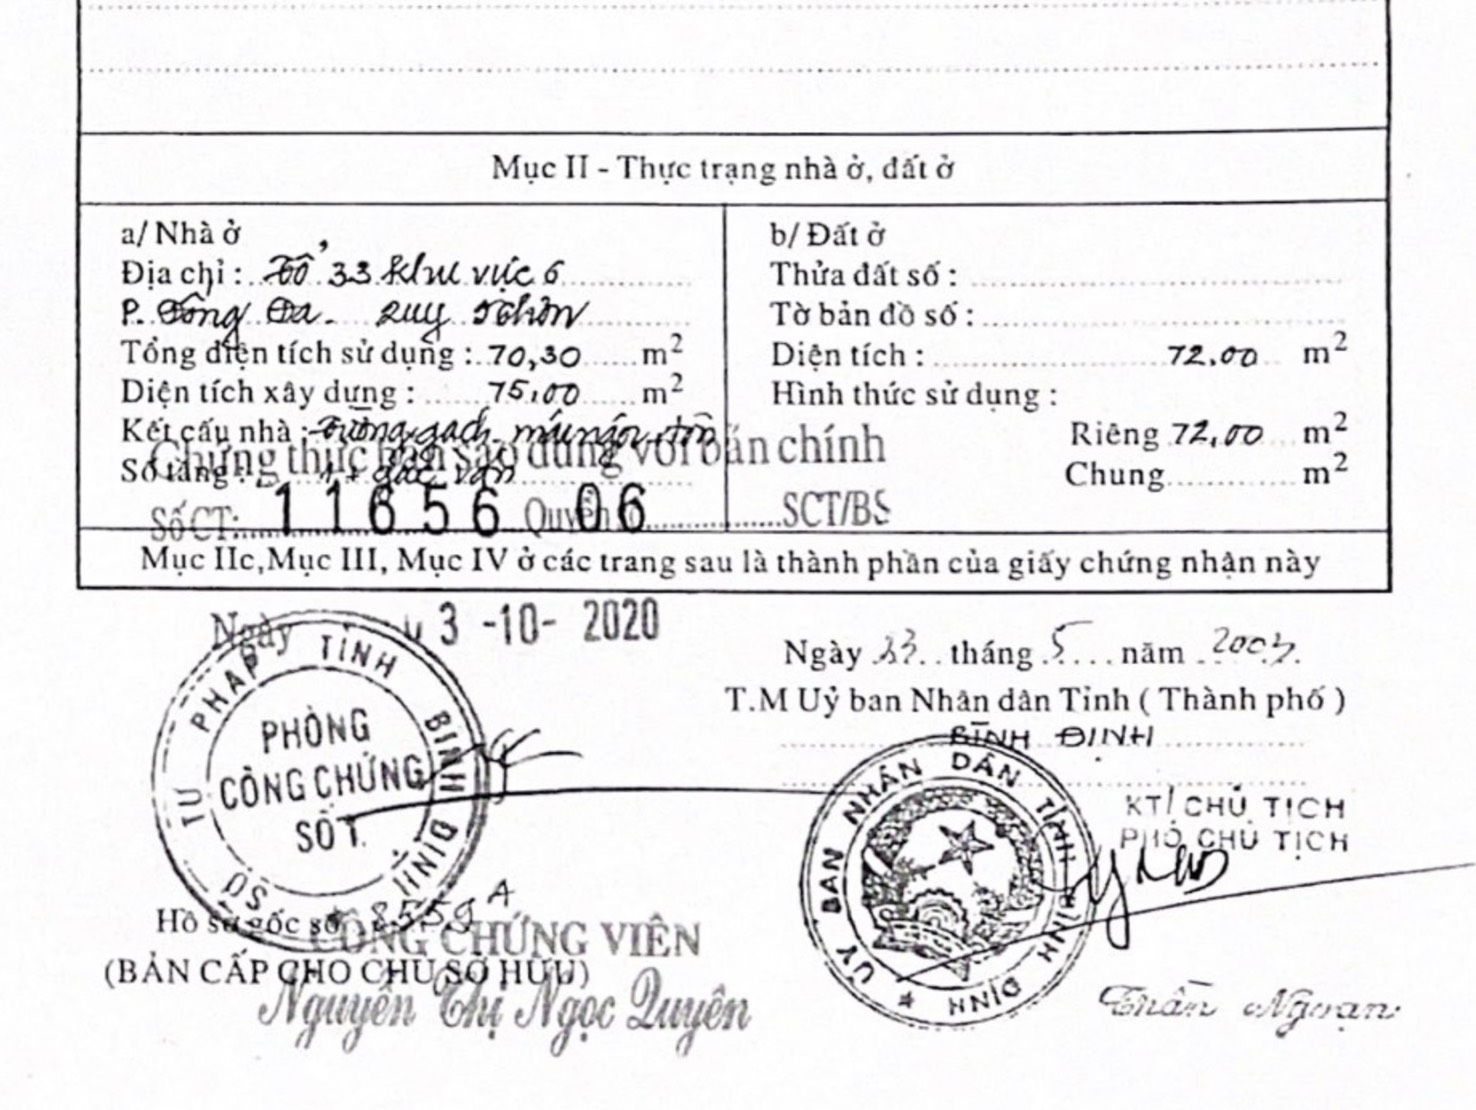 Mục II - Thực trạng nhà ở, đất ở
a/ Nhà ở
Địa chỉ : Tổ 33 khu vực 6
P. Đống Đa - Quy Nhơn
Tổng diện tích sử dụng : 70,30 m²
Diện tích xây dựng : 75,00 m²
Kết cấu nhà : Tường gạch, mái ngói, tôn
Số tầng :
b/ Đất ở
Thửa đất số :
Tờ bản đồ số :
Diện tích : 72,00 m²
Hình thức sử dụng :
Riêng 72,00 m²
Chung m²
Chứng thực bản sao đúng với bản chính
Số CT: 11656 Quyển 06 SCT/BS
Mục IIc, Mục III, Mục IV ở các trang sau là thành phần của giấy chứng nhận này
Ngày 3 -10- 2020
SỞ TƯ PHÁP TỈNH BÌNH ĐỊNH
PHÒNG
CÔNG CHỨNG
SỐ 1
Hồ sơ gốc số
(BẢN CẤP CHO CHỦ SỞ HỮU)
CÔNG CHỨNG VIÊN
Nguyễn Thị Ngọc Quyên
Ngày tháng 5 năm
T.M Uỷ ban Nhân dân Tỉnh ( Thành phố )
BÌNH ĐỊNH
KT/ CHỦ TỊCH
PHÓ CHỦ TỊCH
ỦY BAN NHÂN DÂN TỈNH BÌNH ĐỊNH